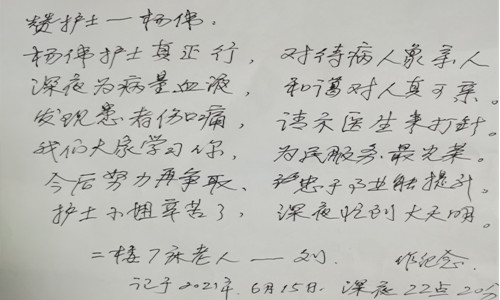 赞护士——杨伟.
杨伟护士真正行, 对待病人象亲人
深夜为病量血液, 和谐对人真可亲。
发现患者伤口痛, 请示医生来打針。
我们大家学习你, 为民服务最光荣。
今后努力再争取、 忠于 业 提升。
护士小姐辛苦了, 深夜忙到大天明。
二楼7床老人——刘. 作纪念.
记于2021年.6月15日. 深夜22点20分